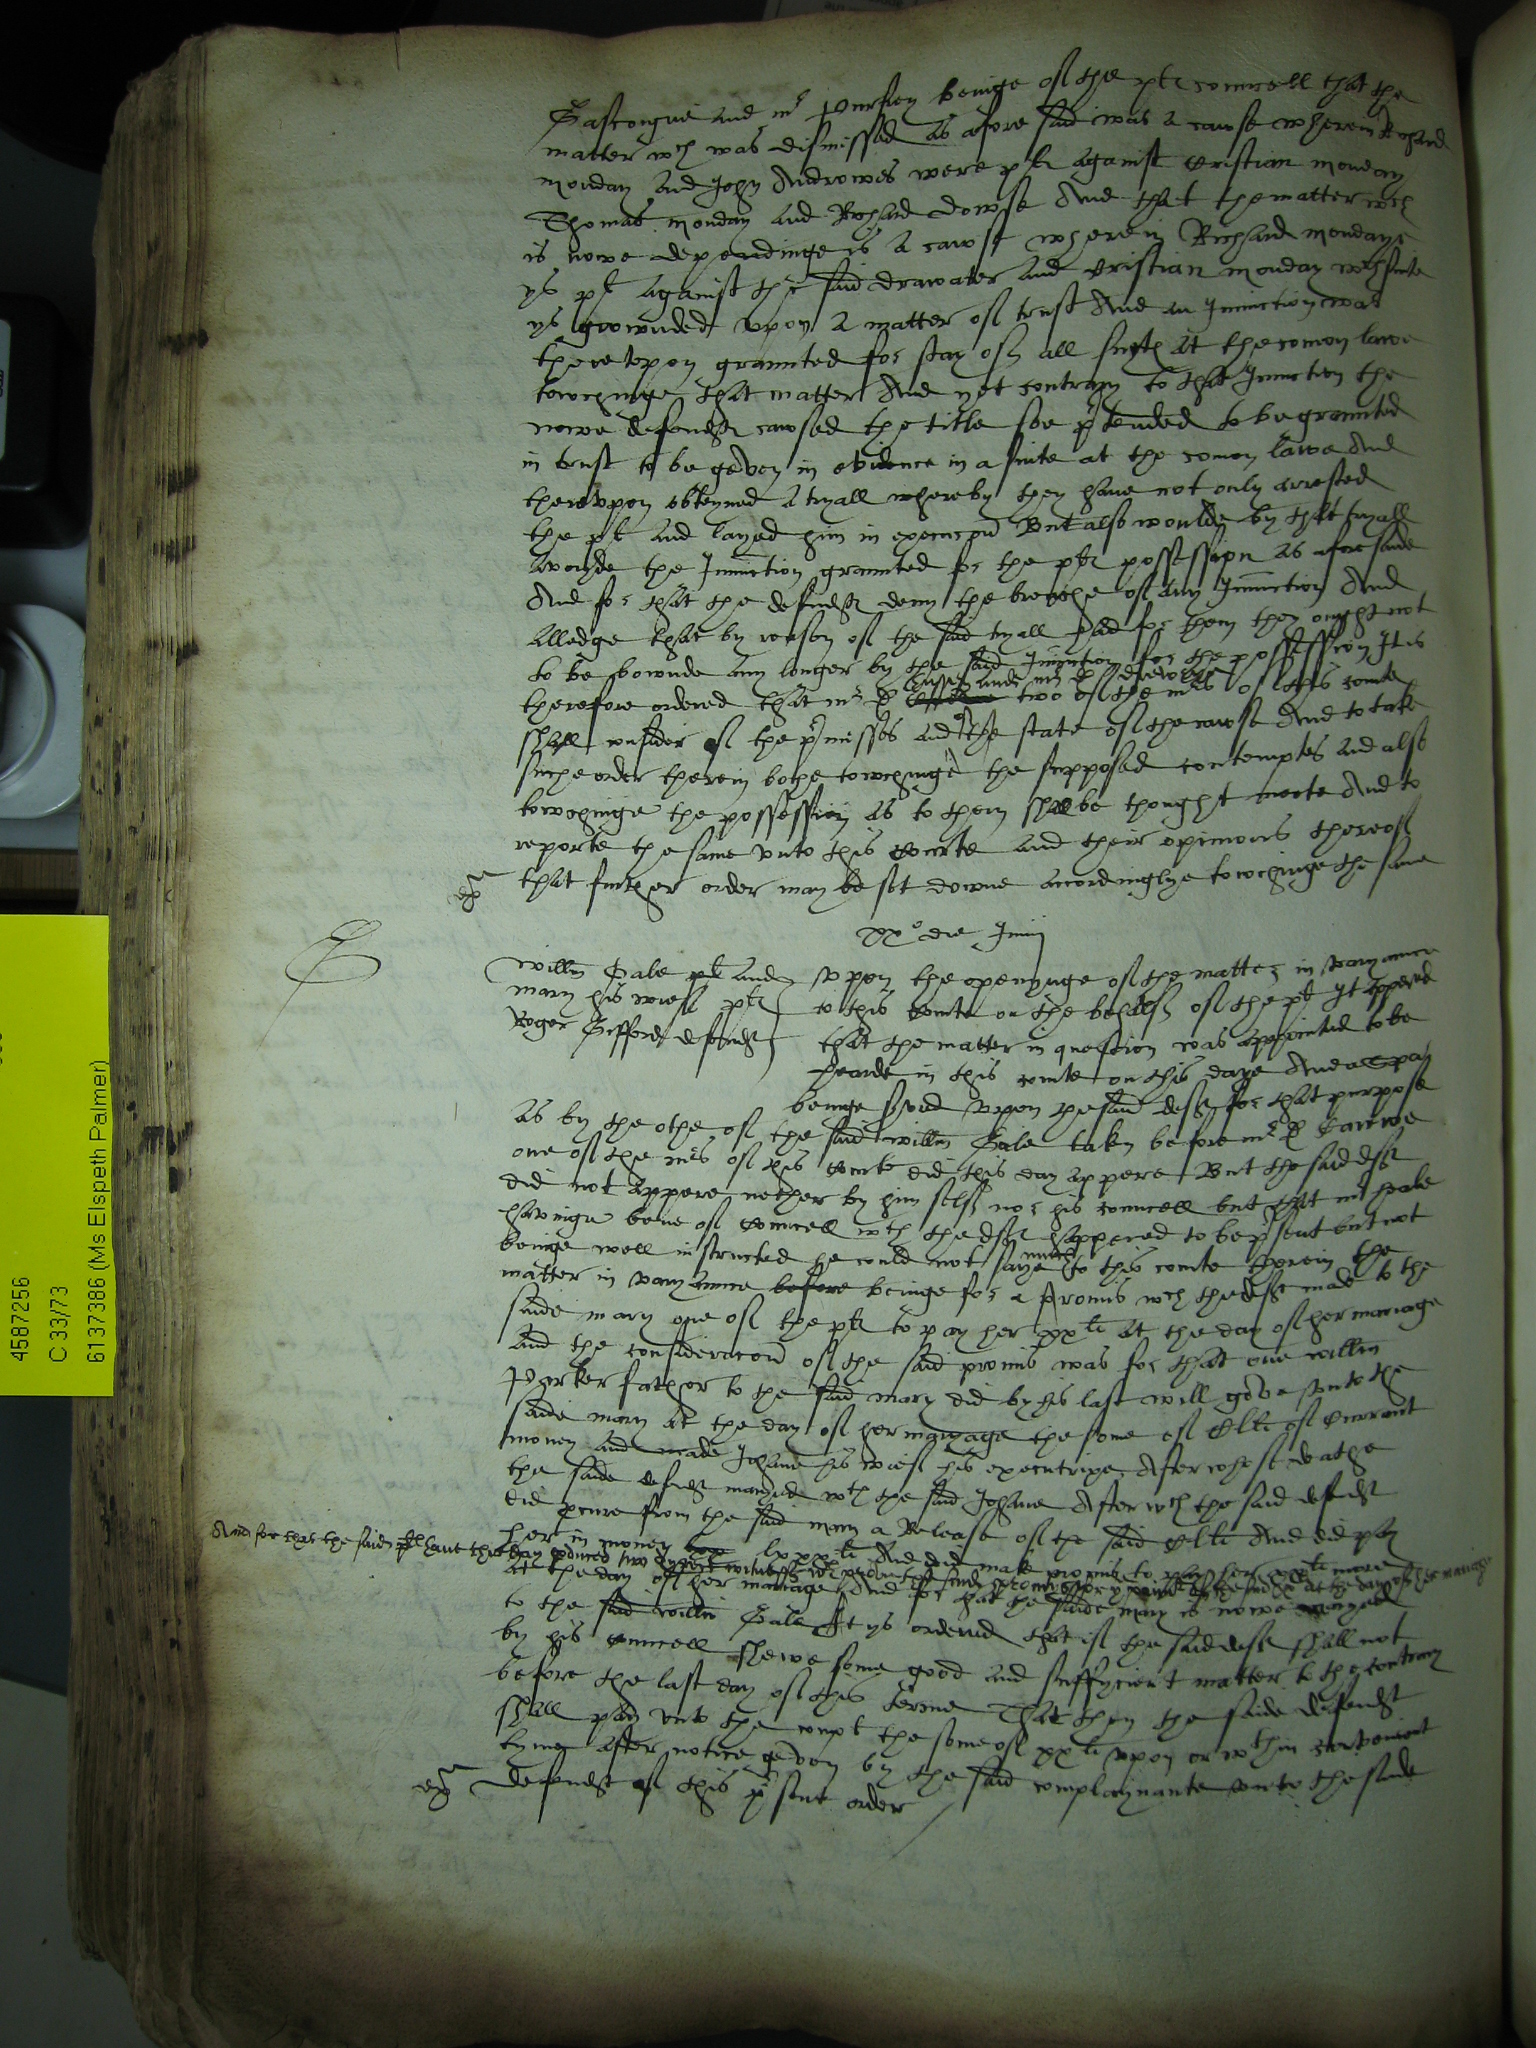 Gascoigne and mr Purfrey beinge of the pltes councell that the
matter wch was dismissed as afore said was a cawse wherein Richard
monday and John Androwes were pltes against Cristian monday
Thomas monday and Richard dowse And that the matter wch
is nowe dependinge is a cawse wherein Richard mondaye
ys plt against the said drawater and Cristian monday wch suite
ys grownded vpon a matter of trust And an Iniunction was
therevpon graunted for stay of all suyts at the comon lawe
towchinge that matter And yet contrary to that Iniunction the
nowe defendtes cawsed the title soe ptended to be graunted
in trust to be geven in evidence in a suite at the comon lawe And
therevpon obteyned a tryall whereby they have not only arrested
the plt and layed him in execucon But also woulde by that tryall
avoyde the Iniunction graunted for the pltes possession as aforesaide
And for that the defendtes deny the breache of any Iniunction And
alledge that by reason of the said tryall had for them they ought not
to be bownde any longer by the said Iniunction for the possession It is
therefore ordered that mr D two of the mrs of this courte
shall consider of the pmisses and of the state of the cawse And to take
suche order therein bothe towchinge the supposed contemptes and also
towchinge the possession as to them shalbe thought meete And to
reporte the same vnto this courte and their opinions thereof
that further order may be set downe accordinglye towchinge the same
xxo die Junij
willm Gale plt and
mary his wief pltes
Roger Gifford defendt
vppon the openynge of the matter in varyaunce
to this courte on the behalf of the plt It appered
that the matter in question was appointed to be
hearde in this courte on this daye And a spa
beinge servid vppon the said deft for that purpose
as by the othe of the said willm Gale taken before mr D Carewe
one of the mrs of this courte did this day appere But the said deft
did not appere nether by him self nor his councell but that mr heale
havinge bene of councell wth the deft happened to be psent but not
beinge well instructed he could not saye much to this courte herein the
matter in varyaunce before beinge for a promis wch the deft made to the
saide mary one of the pltes to pay her xxli at the day of her mariage
and the consideracon of the said promis was for that one willm
Parker father to the said mary did by his last will geve vnto the
saide mary at the day of her maryage the some of Cli of currant
money and made Johane his wief his executrixe After whose deathe
the saide defendt maryed wth the said Johane After wch the said defendt
did pcure from the said mary a Release of the said Cli And did pay
her in money lxxxli And did make promis to pay her xxli more
And for that the said pltes have this day pduced two
at the day of her mariage And for that the saide mary is nowe maryed
to the said willm Gale It ys ordered that if the said deft shall not
by his councell shewe some good and suffycient matter to the contrary
before the last day of this terme That then the saide defendt
shall pay vnto the complt the some of xxli vpon or wthin convenient
tyme after notice geven by the said complaynante vnto the saide
defendt of this psent order